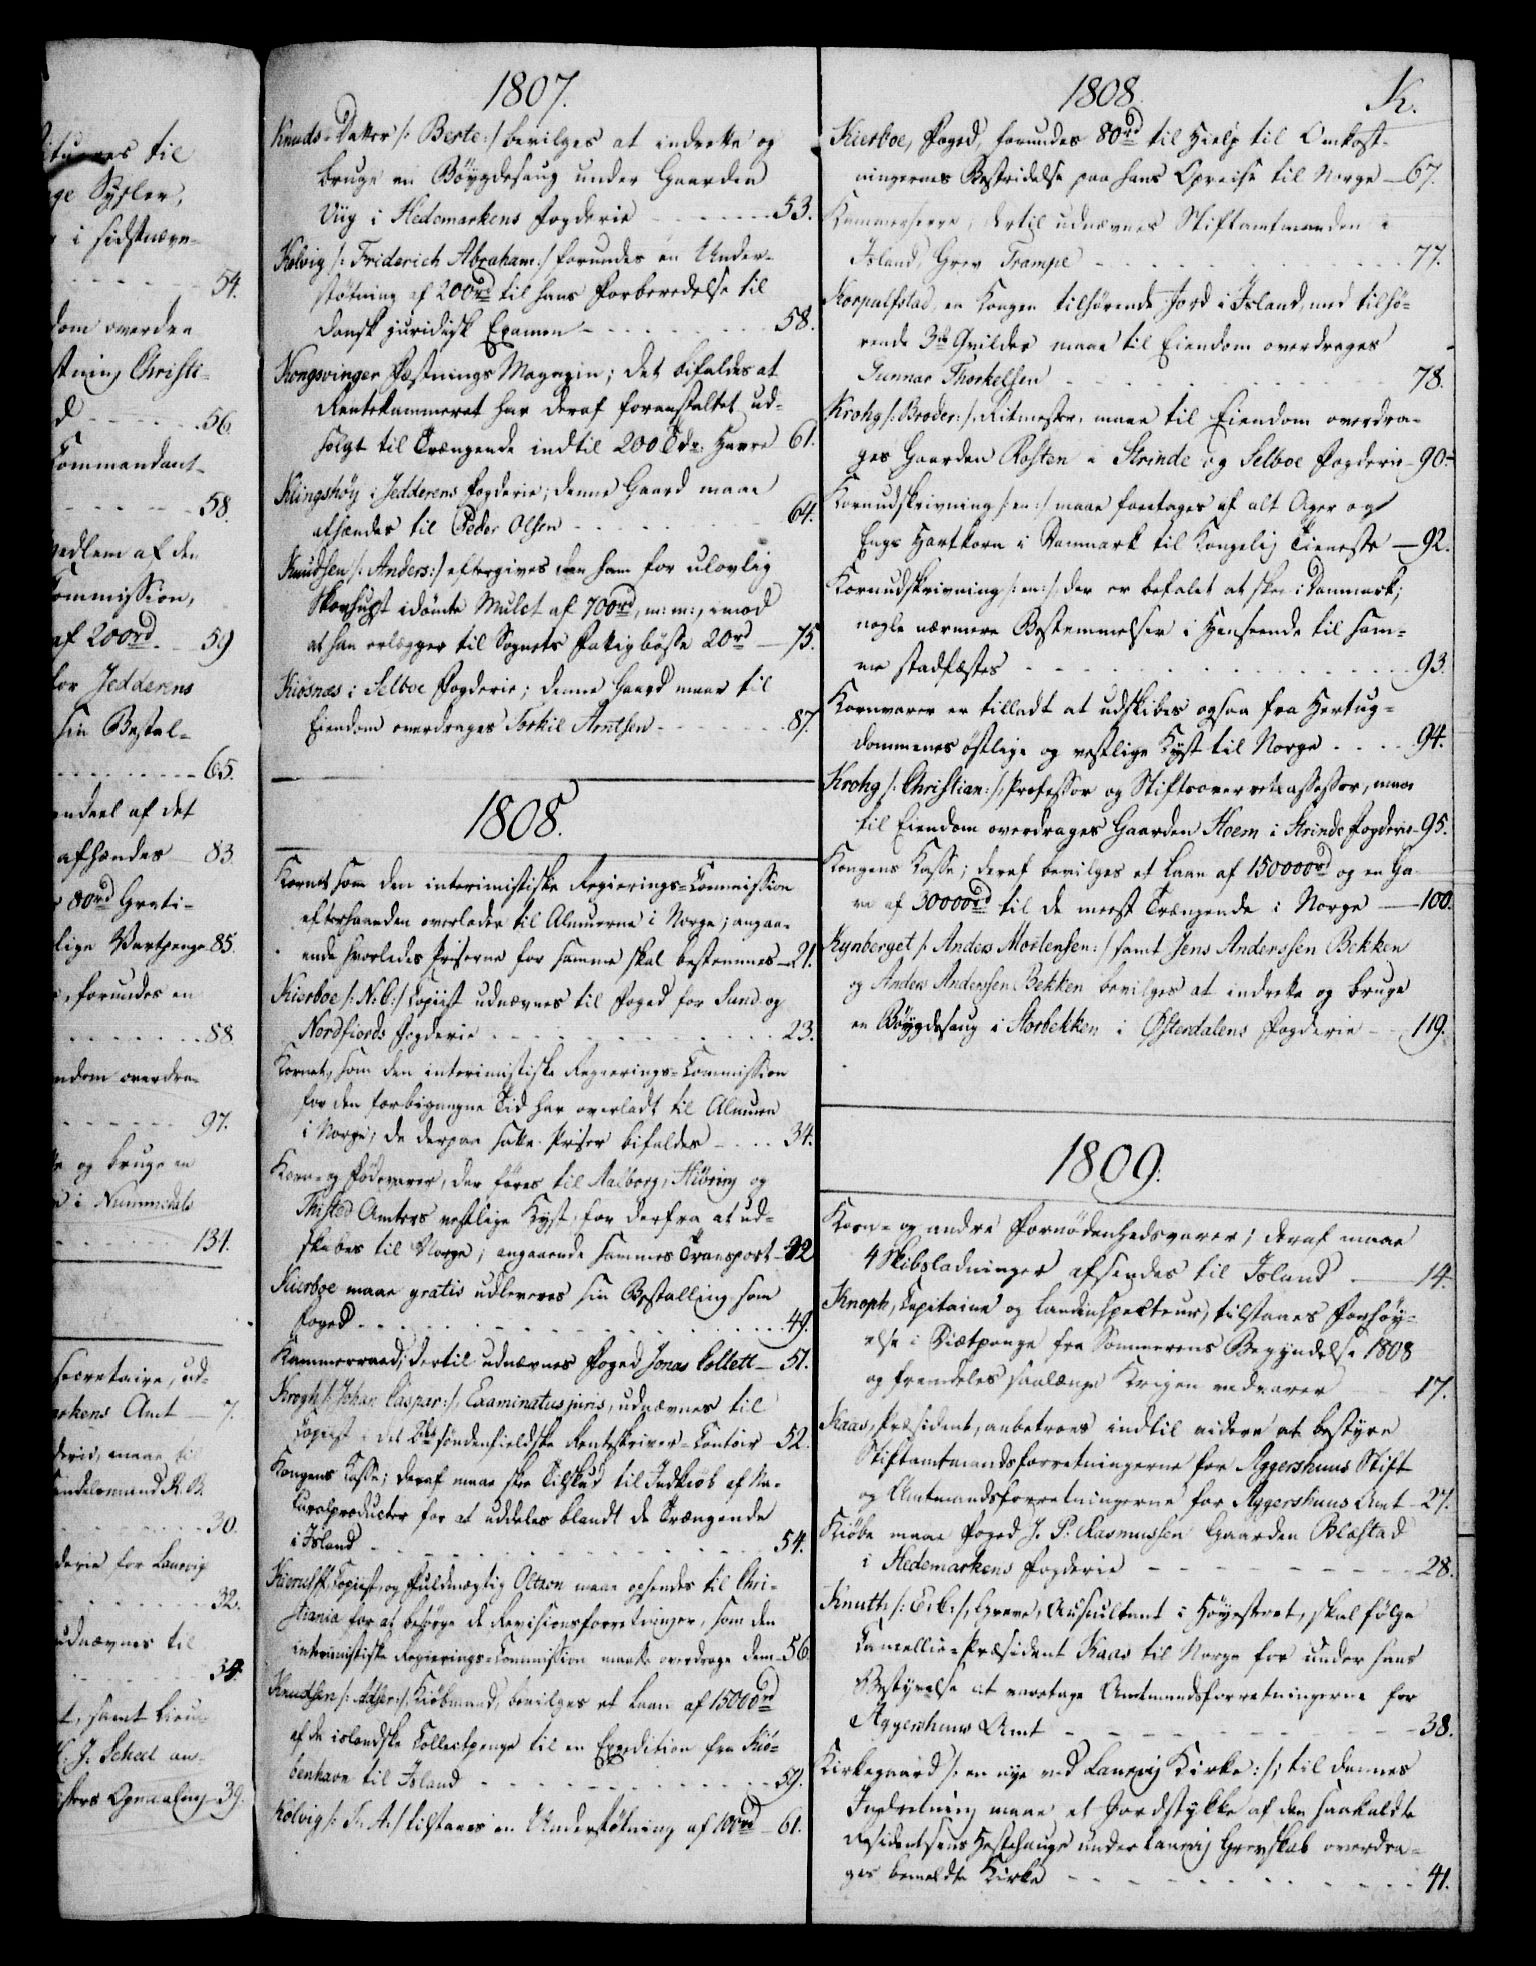 ituernes til
ge Sysler,
i sidstnævn-
54.
dom overdra
stning Christi-
d - - - - 56.
Commandant-
58.
Medlem af den
Commission,
af 200rd. - 59
for Jedderens
sin Bestal-
65.
endeel af det
afhændes - 83.
80rd Grati-
lige Vartpenge 85.
forundes en
88
endom overdra-
97.
og bruge en
i Nummedals
131.
secretaire, ud-
rkens Amt - 7.
derie, maae til
Handelsmand R. B.
30.
derie for Laurvig
32.
udnævnes til
34.
t, samt Lieu-
H. J. Scheel an-
39.
1807.
Knuds-Datter /: Berte :/ bevilges at indrette og
bruge en Böygdesaug under Gaarden
Viig i Hedemarkens Fogderie - - - 53.
Kølvig /: Friderich Abraham :/ forundes en Under-
støtning af 200rd til hans Forberedelse til
dansk juridisk Examen - - - 58.
Kongsvinger Fæstnings Magazin; det bifaldes at
Rentekammeret har deraf foranstaltet ud-
solgt til Trængende indtil 200 Tdr. Havre 61.
Klingshöy i Jedderens Fogderie; denne Gaard maae
afhændes til Peder Olsen - - - 64.
Knudsen /: Anders :/ eftergives den ham for ulovlig
Skovhugst idömte Mulct af 700rd, m: m:, imod
at han erlægger til Sognets Fattigbösse 20rd - 75.
Kiösnæs i Selboe Fogderie; denne Gaard maae til
Eiendom overdrages Torkil Arntsen - - - 87.
1808.
Kornet som den interimistiske Regierings-Commission
efterhaanden overlader til Almuerne i Norge; angaa-
ende hvorledes Priserne for samme skal bestemmes - 21.
Kierboe /: N: C: / Copiist udnævnes til Foged for Sund og
Nordfiords Fogderie - - - 23.
Kornet, som den interimistiske Regierings-Commission
for den forbigangne Tid har overladt til Almuen
i Norge; de derpaa satte Priser bifaldes - - - 34.
Korn- og Födevarer, der føres til Aalborg, Hiöring og
Thisted Amters vestlige Kyst, for derfra at ud-
skibes til Norge; angaaende sammes Transport - 42
Kierboe maae gratis udleveres sin Bestalling som
Foged - - - 49.
Kammerraad; dertil udnævnes Foged Jonas Collett - 51.
Krogh /: Johan Caspar :/, Examinatus juris, udnævnes til
Copiist i det 2det söndenfieldske Rentskriver-Contoir - 52.
Kongens Kasse; deraf maae skee Tilskud til Indkiöb af Na-
turalproducter for at uddeles blandt de Trængende
i Island - - - 54.
Kierulff, Copiist, og Fuldmægtig Oltzon maae opsendes til Chri-
stiania for at besörge de Revisionsforretninger, som den
interimistiske Regierings-Commission maatte overdrage dem - 56.
Knudsen /: Adser :/, Kiöbmand, bevilges et Laan af 15000rd
af de islandske Collectpenge til en Expedition fra Kiö-
benhavn til Island - - - 59.
Kølvig /: F. A :/ tilstaaes en Understötning af 100rd - 61.
1808. K.
Kierboe, Foged, forundes 80rd til Hielp til Omkost-
ningernes Bestridelse paa hans Opreise til Norge - 67.
Kammerherre, dertil udnævnes Stiftamtmanden i
Island, Grev Trampe - - - 77.
Korpulfstad, en Kongen tilhörende Jord i Island, med tilhö-
rende 3de Qvilder maae til Eiendom overdrages
Gunnar Thorkelsen - - - 78.
Krohg /: Broder :/, Ritmester, maae til Eiendom overdra-
ges Gaarden Rosten i Strinde og Selboe Fogderie - 90.
Kornudskrivning /: en :/ maae foretages af alt Ager og
Engs Hartkorn i Danmark til Kongelig Tieneste - 92.
Kornudskrivning /: en :/ der er befalet at skee i Danmark;
nogle nærmere Bestemmelser i Henseende til sam-
me stadfæstes - - - 93.
Kornvarer er tilladt at udskibes ogsaa fra Hertug-
dommenes östlige og vestlige Kyst til Norge - - - 94.
Krohg /: Christian :/, Professor og Stiftsoverretsassessor, maae
til Eiendom overdrages Gaarden Hoem i Strinde Fogderie - 95.
Kongens Kasse; deraf bevilges et Laan af 150000rd og en Ga-
ve af 30000rd til de meest Trængende i Norge - 100.
Kynberget /: Anders Mortensen :/ samt Jens Andersen Bekken
og Anders Andersen Bekken bevilges at indrette og bruge
en Böygdesaug i Storbekken i Østerdalens Fogderie - 119.
1809.
Korn- og andre Fornödenhedsvarer; deraf maae
4 Skibsladninger afsendes til Island - 14.
Knoph, Capitaine og Landinspecteur, tilstaaes Forhöy-
else i Diætpenge fra Sommerens Begyndelse 1808
og fremdeles saalænge Krigen vedvarer - 17.
Kaas, Præsident, anbetroes indtil videre at bestyre
Stiftamtmandsforretningerne for Aggershuus Stift
og Amtmandsforretningerne for Aggershuus Amt - 27.
Kiöbe maae Foged J. P. Rasmussen Gaarden Blæstad
i Hedemarkens Fogderie - - - 28.
Knuth /: Erb: /, Greve, Auscultant i Höyesteret, skal fölge
Cancellie-Præsident Kaas til Norge for under hans
Bestyrelse at varetage Amtmandsforretningerne for
Aggershuus Amt - - - 38.
Kirkegaard /: en nye ved Laurvig Kirke :/; til dennes
Indretning maae et Jordstykke af den saakaldte
Residentsens Hestehauge under Laurvig Grevskab overdra-
ges bemeldte Kirke - - - 41.